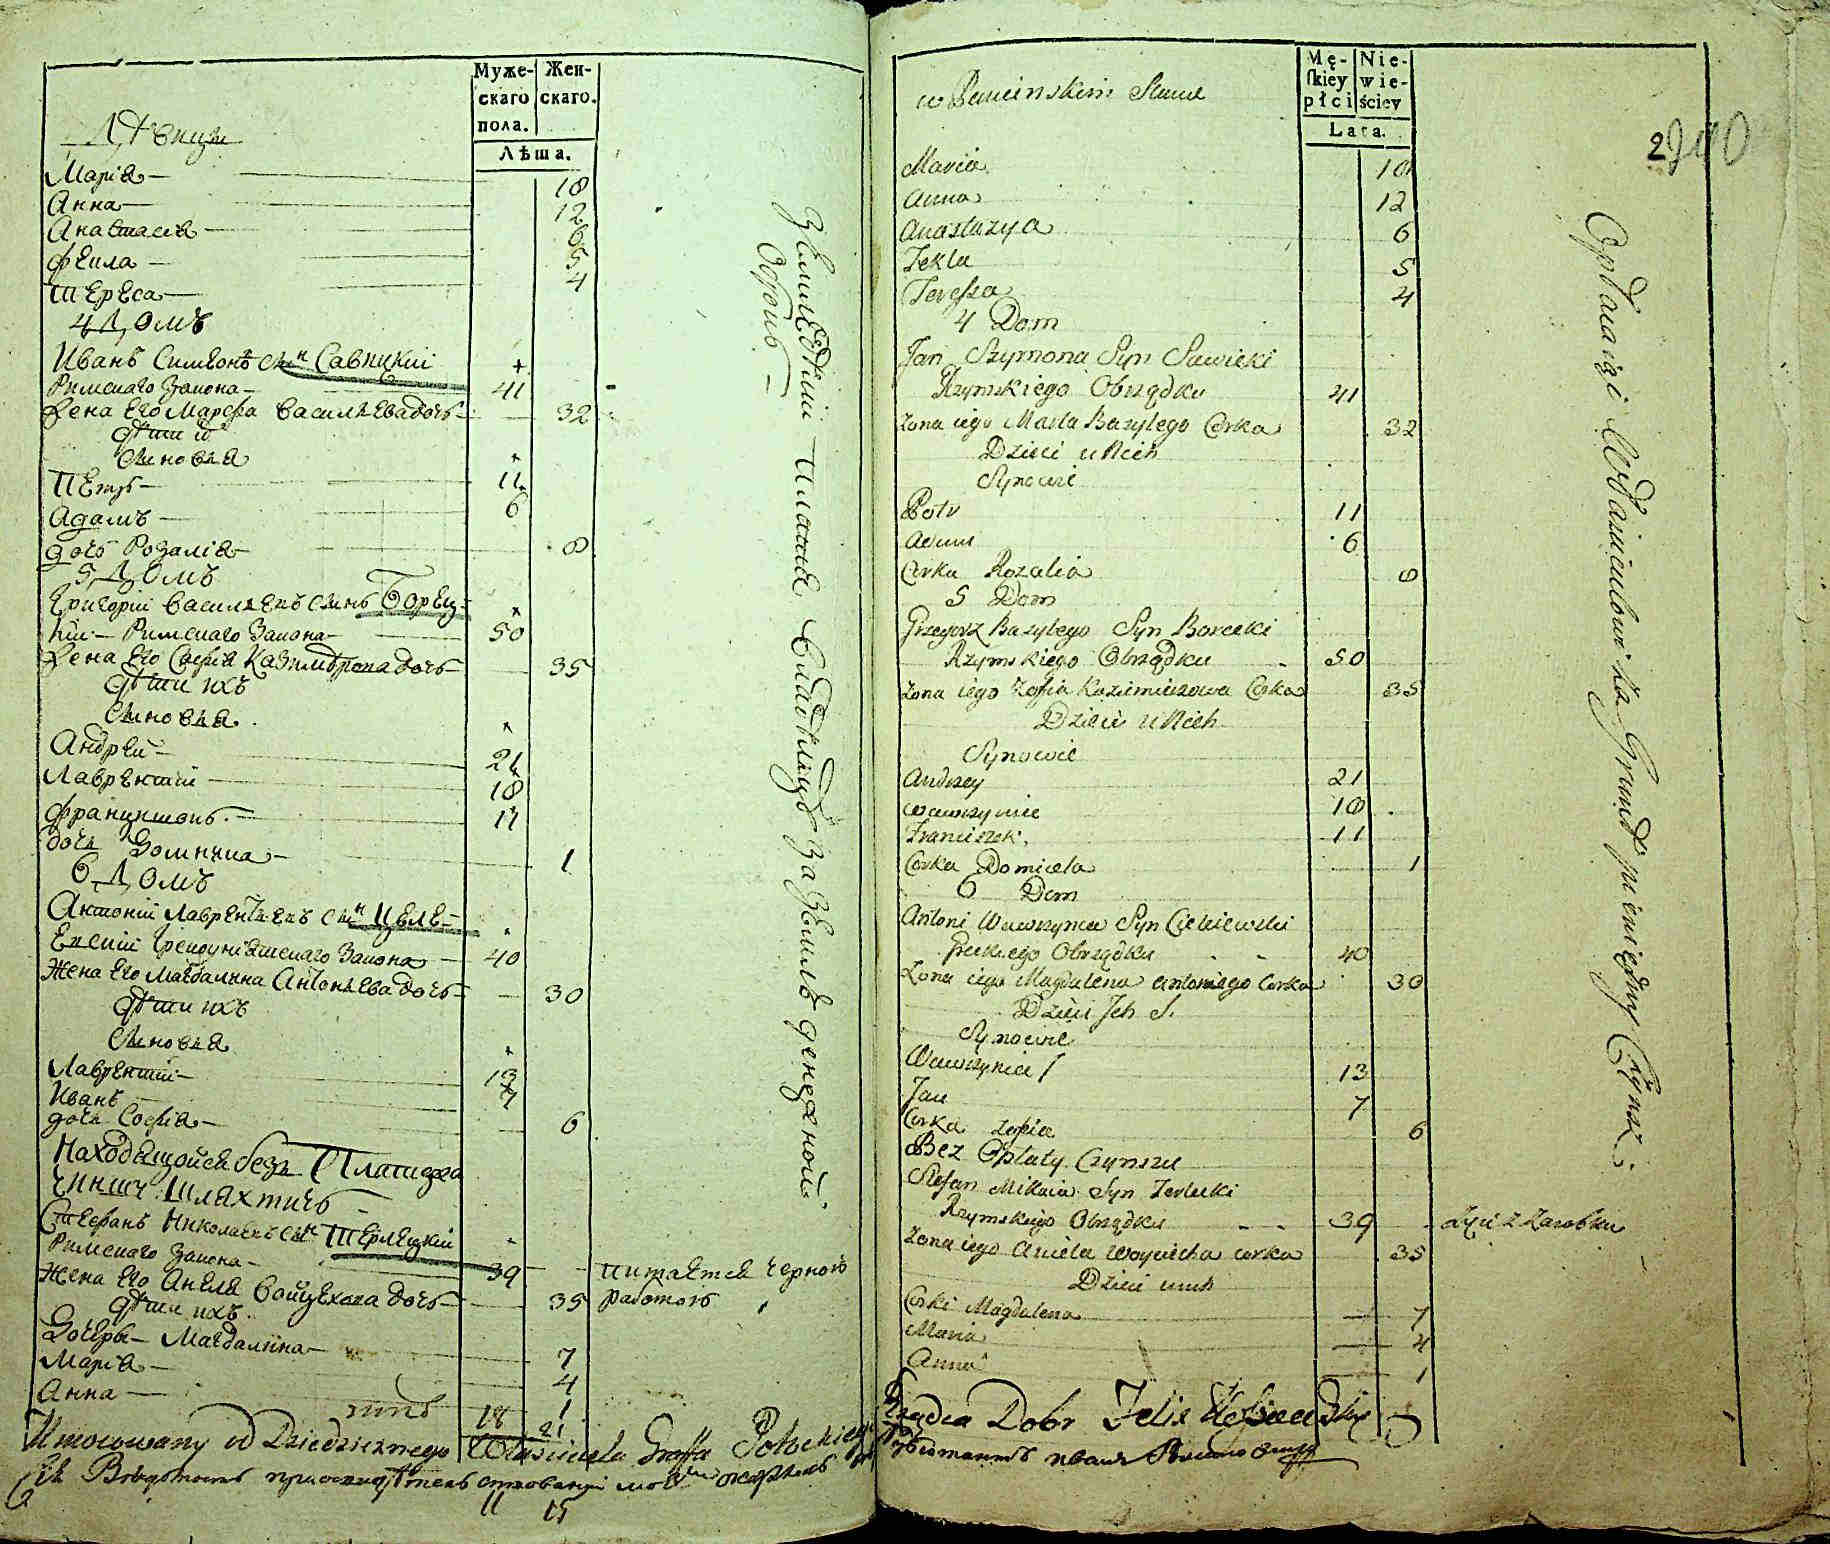 Муже-
скаго
пола.
Жен-
скаго.
Лѣта.
Дѣвицы
Марiя — 18
Анна — 12
Анастасiя — 6
Фекла — 5
Тереса — 4
4 Домъ
Иванъ Симеонъ сынъ Савицкiй
Римскаго Закона — 41
Жена Его Марфа Васильева дочь — 32
Дѣти их
Сыновья
Петръ — 11
Адамъ — 6
дочь Розалiя — 8
5 Домъ
Григорiй Васильевъ сынъ Борец-
кiй — Римскаго Закона — 50
Жена Его Софiя Казимѣрова дочь — 35
Дѣти ихъ
Сыновья
Андрей — 21
Лаврентiй — 18
Францишокъ — 11
дочь Домицела — 1
6 Домъ
Антонiй Лаврентьевъ сын Целе-
евскiй Грекоунiятскаго Закона — 40
Жена Его Магдалына Антоньева дочь — 30
Дѣти ихъ
Сыновья
Лаврентiй — 13
Иванъ — 7
дочь Софiя — 6
Находящойся безъ Платежа
чиншу шляхтичъ —
Стефанъ Николаевъ сын Терлецкiй
Римскаго Закона — 39
Жена Его Анеля Войцехова дочь — 35
Дѣти ихъ
Дочеры — Магдалина — 7
Марiя — 4
Анна — 1
18 21
питается черною
работою
Земледѣлiй платя владѣлцу за землѣ денежной
Оброкъ —
Umocowany od Dziedzicznego Własciciela Graffa Potockiego
11 15
w Panienskim Stanie
Mę-
skiey
płci
Nie-
wie-
ściey
Lata.
2
200
Maria 18
Anna 12
Anastazya 6
Tekla 5
Teressa 4
4 Dom
Jan Szymona Syn Sawicki
Rzymskiego Obrządku 41
Zona iego Marta Bazylego Corka 32
Dzieci u Nich
Synowie
Piotr 11
Adam 6
Corka Rozalia 8
5 Dom
Grzegorz Bazylego Syn Borecki
Rzymskiego Obrządku 50
Zona iego Zofia Kazimierzowa Corka 35
Dzieci u Nich
Synowie
Andrzey 21
Wawrzyniec 18
Franciszek 11
Corka Domicela 1
6 Dom
Antoni Wawrzynca Syn Cielewski
Greckiego Obrządku 40
Zona iego Magdalena Antoniego Corka 30
Dzieci Ich S.
Synowie
Wawrzyniec 13
Jan 7
Corka Zofia 6
Bez Opłaty Czynszu
Stefan Mikołaia Syn Terlecki
Rzymskiego Obrządku 39
żyie z Zarobku
Zona iego Aniela Woyciecha corka 35
Dzieci
Corki Magdalena 7
Maria 4
Anna 1
Opłacaią Właścicielowi za Grunt pieniężny Czynsz
Rządca Dobr